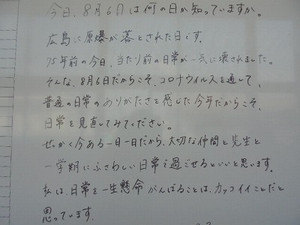 今日、8月6日は何の日か知っていますか。
広島に原爆が落とされた日です。
75年前の今日、当たり前の日常が一気に壊されました。
そんな、8月6日だからこそ、コロナウイルスを通して、
普通の日常のありがたさを感じた今年だからこそ、
日常を見直してみてください。
せっかく今ある一日一日だから、大切な仲間と先生と
一学期にふさわしい日常を過ごせるといいと思います。
私は、日常を一生懸命がんばることは、カッコイイことだと
思っています。